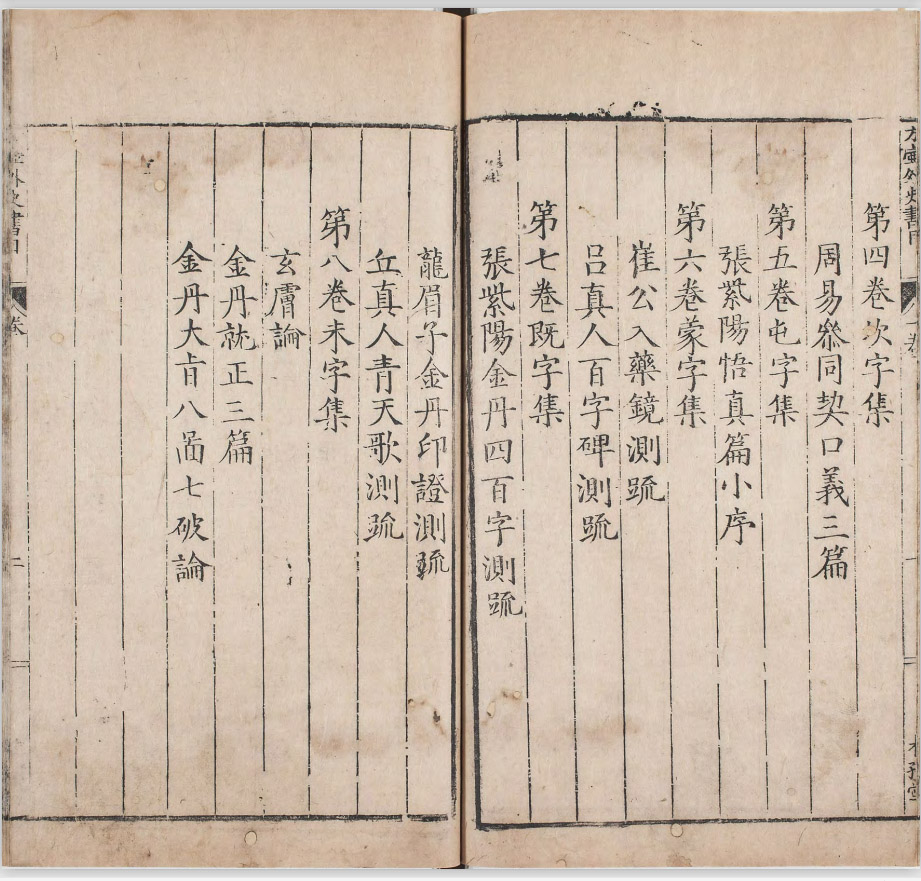 方壺外史書目
第四卷坎字集
周易參同契口義三篇
第五卷屯字集
張紫陽悟真篇小序
第六卷蒙字集
崔公入藥鏡測疏
呂真人百字碑測疏
第七卷既字集
張紫陽金丹四百字測疏
龍眉子金丹印證測疏
丘真人青天歌測疏
第八卷未字集
玄膚論
金丹就正三篇
金丹大旨八啚七破論
壺外史書目
卷
二